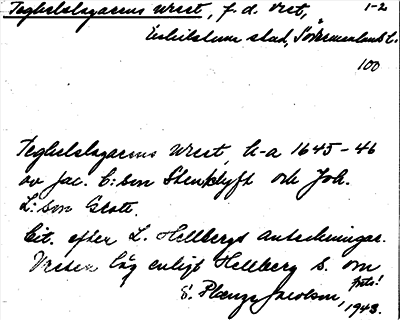 Tegelslagarens Wret, f. d. Vret, 1-2
Eskilstuna stad, Södermanland l.
100
Tegelslagarens Wret, u-a 1645-46
av Jac. C:son Stenklyft och Joh.
L:son Grott.
Cit. efter L. Hellbergs anteckningar.
Vreten låg enligt Hellberg S. om
S. Plænge Jacobson, 1943.